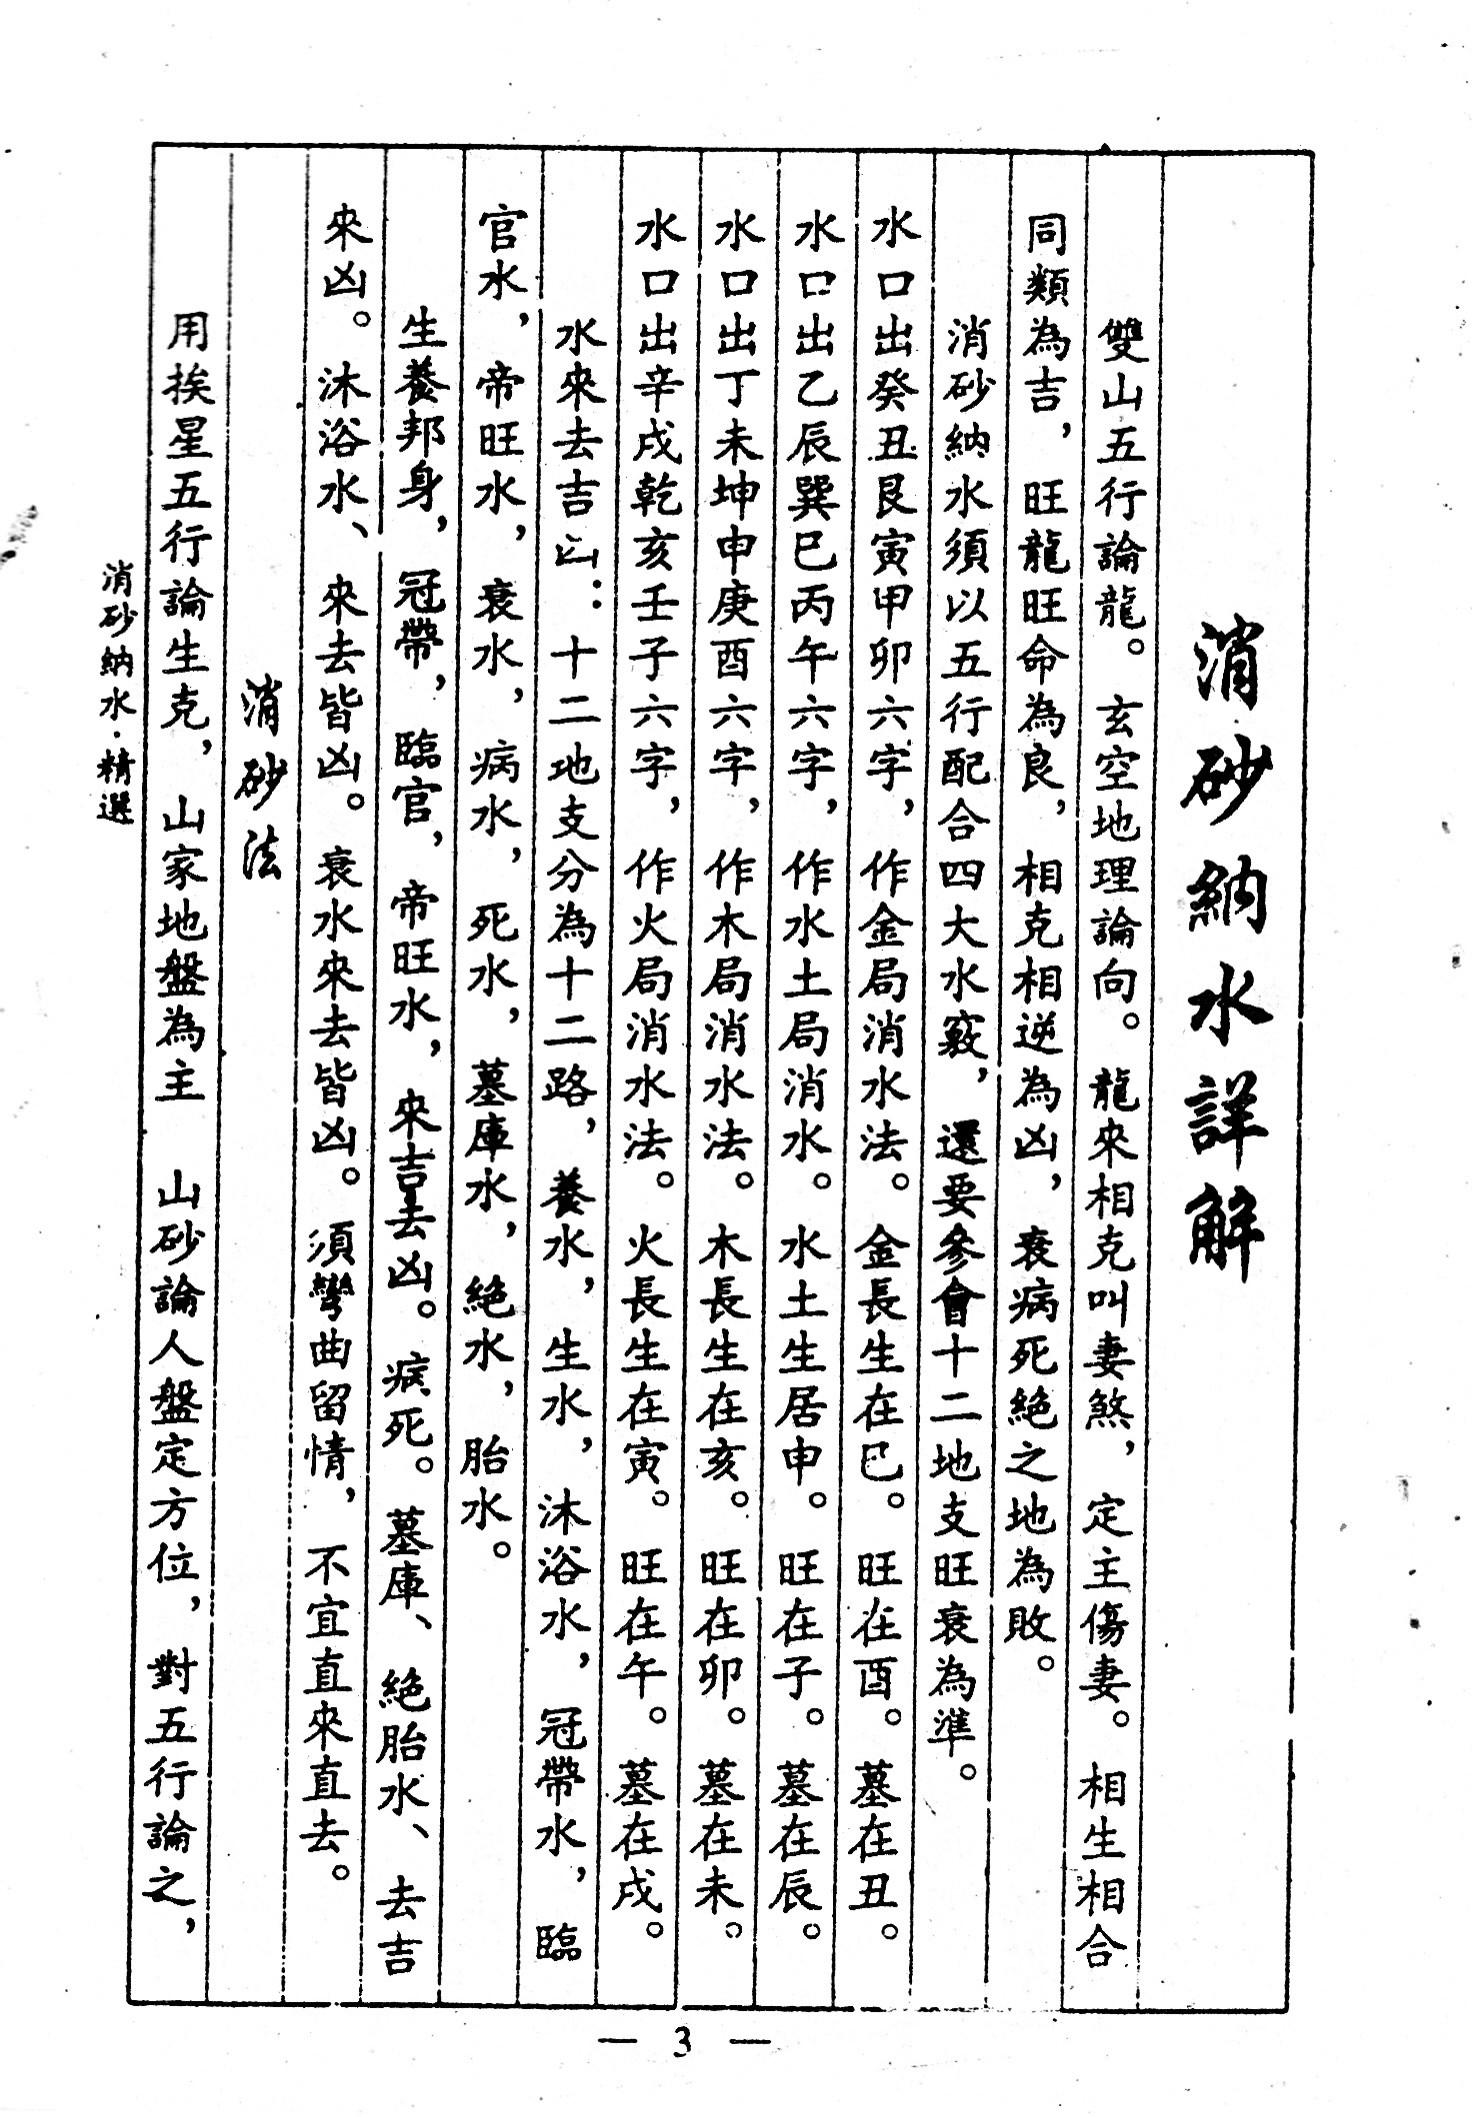 消砂納水詳解
雙山五行論龍。玄空地理論向。龍來相克叫妻煞，定主傷妻。相生相合
同類為吉，旺龍旺命為良，相克相逆為凶，衰病死絶之地為敗。
消砂納水須以五行配合四大水竅，還要參會十二地支旺衰為準。
水口出癸丑艮寅甲卯六字，作金局消水法。金長生在巳。旺在酉。墓在丑。
水口出乙辰巽巳丙午六字，作水土局消水。水土生居申。旺在子。墓在辰。
水口出丁未坤申庚酉六字，作木局消水法。木長生在亥。旺在卯。墓在未。
水口出辛戌乾亥壬子六字，作火局消水法。火長生在寅。旺在午。墓在戌。
水來去吉凶：十二地支分為十二路，養水，生水，沐浴水，冠帶水，臨
官水，帝旺水，衰水，病水，死水，墓庫水，絶水，胎水。
生養邦身，冠帶，臨官，帝旺水，來吉去凶。病死。墓庫、絶胎水、去吉
來凶。沐浴水、來去皆凶。衰水來去皆凶。須彎曲留情，不宜直來直去。
消砂法
用挨星五行論生克，山家地盤為主　山砂論人盤定方位，對五行論之，
消砂納水·精選
— 3 —